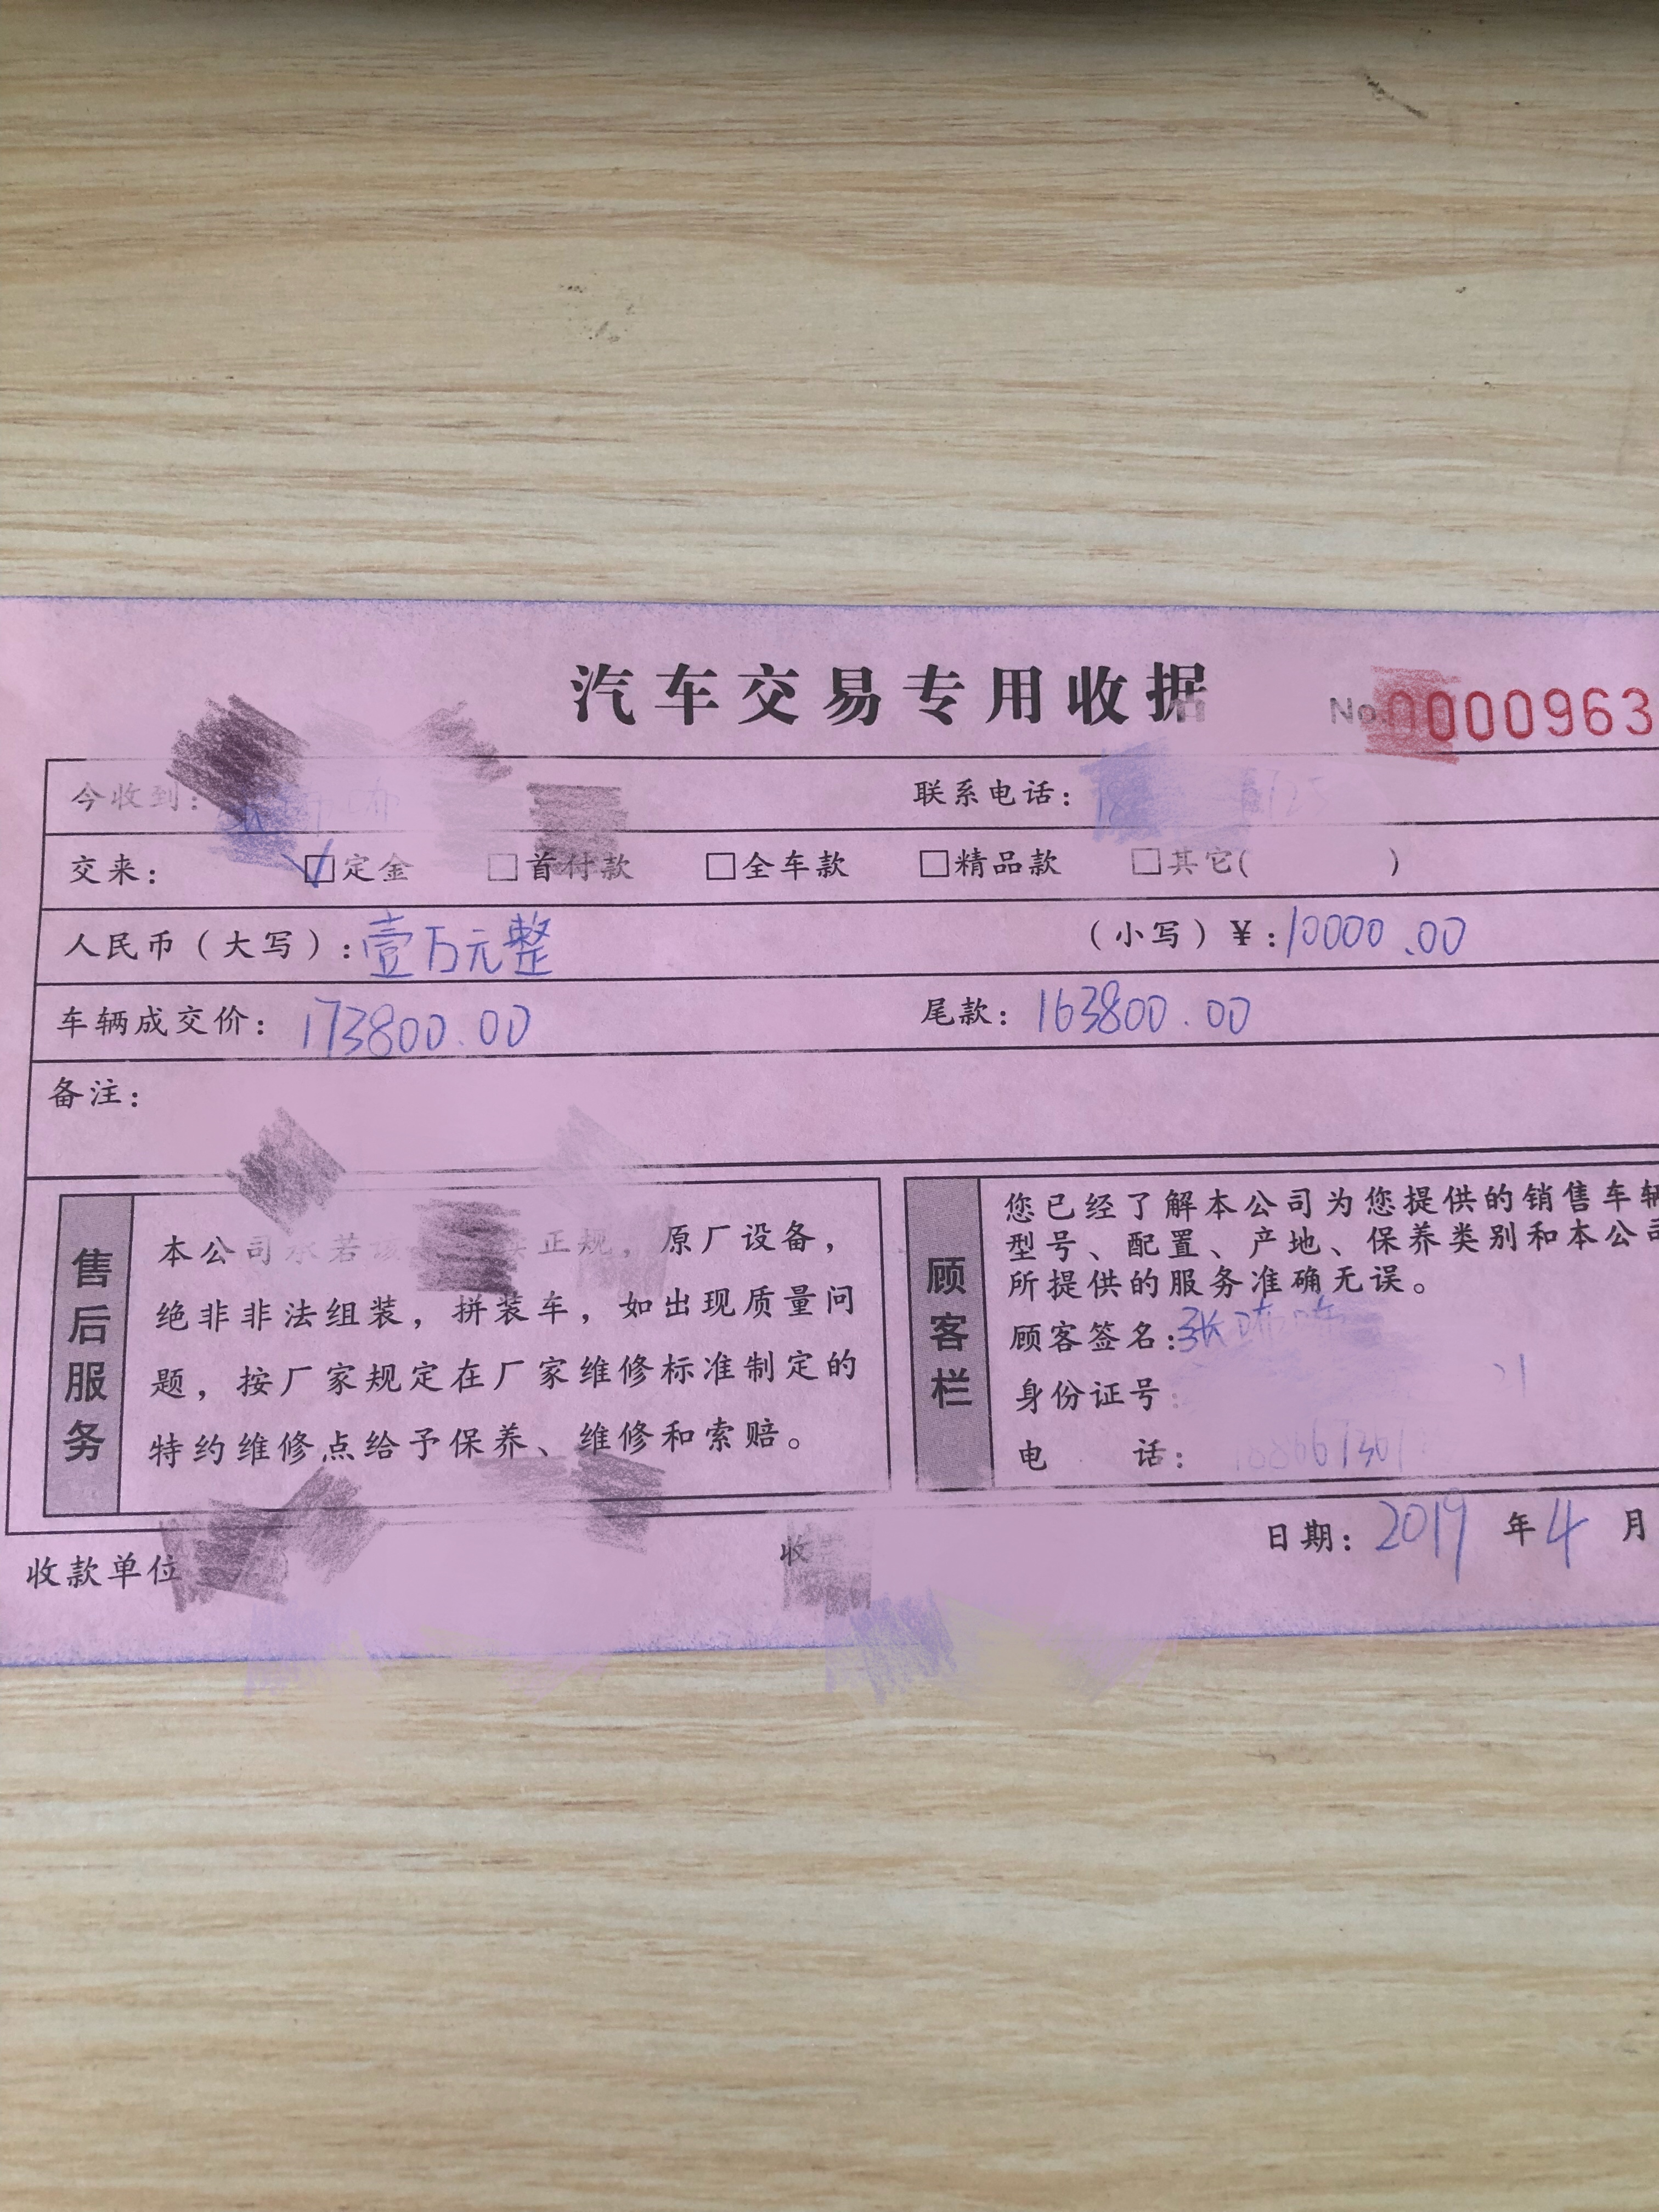 汽车交易专用收据 No.0000963
今收到： 联系电话：
交来： ☑定金 □首付款 □全车款 □精品款 □其它( )
人民币（大写）：壹万元整 （小写）¥：10000.00
车辆成交价：173800.00 尾款：163800.00
备注：
售后服务
本公司承若 正规，原厂设备，
绝非非法组装，拼装车，如出现质量问
题，按厂家规定在厂家维修标准制定的
特约维修点给予保养、维修和索赔。
顾客栏
您已经了解本公司为您提供的销售车辆
型号、配置、产地、保养类别和本公司
所提供的服务准确无误。
顾客签名：张
身份证号：
电 话：
收款单位 收 日期：2019年4月